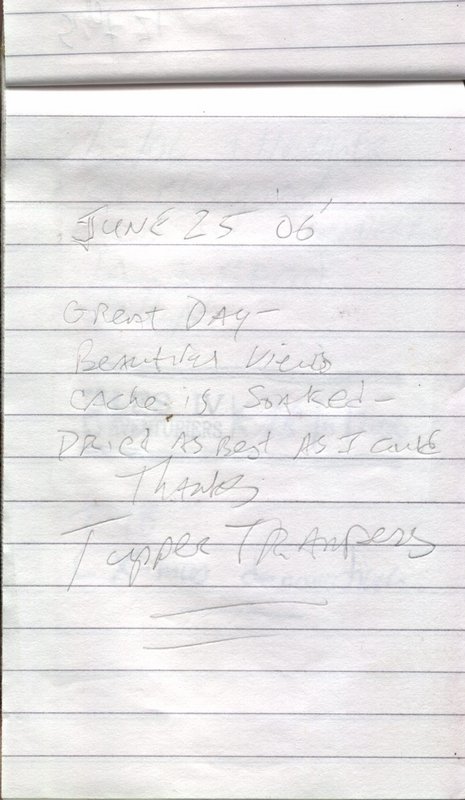 JUNE 25 '06'
GREAT DAY -
BEAUTIFUL VIEWS
CACHE IS SOAKED -
DRIED AS BEST AS I
THANKS
TUPPER TRAMPERS